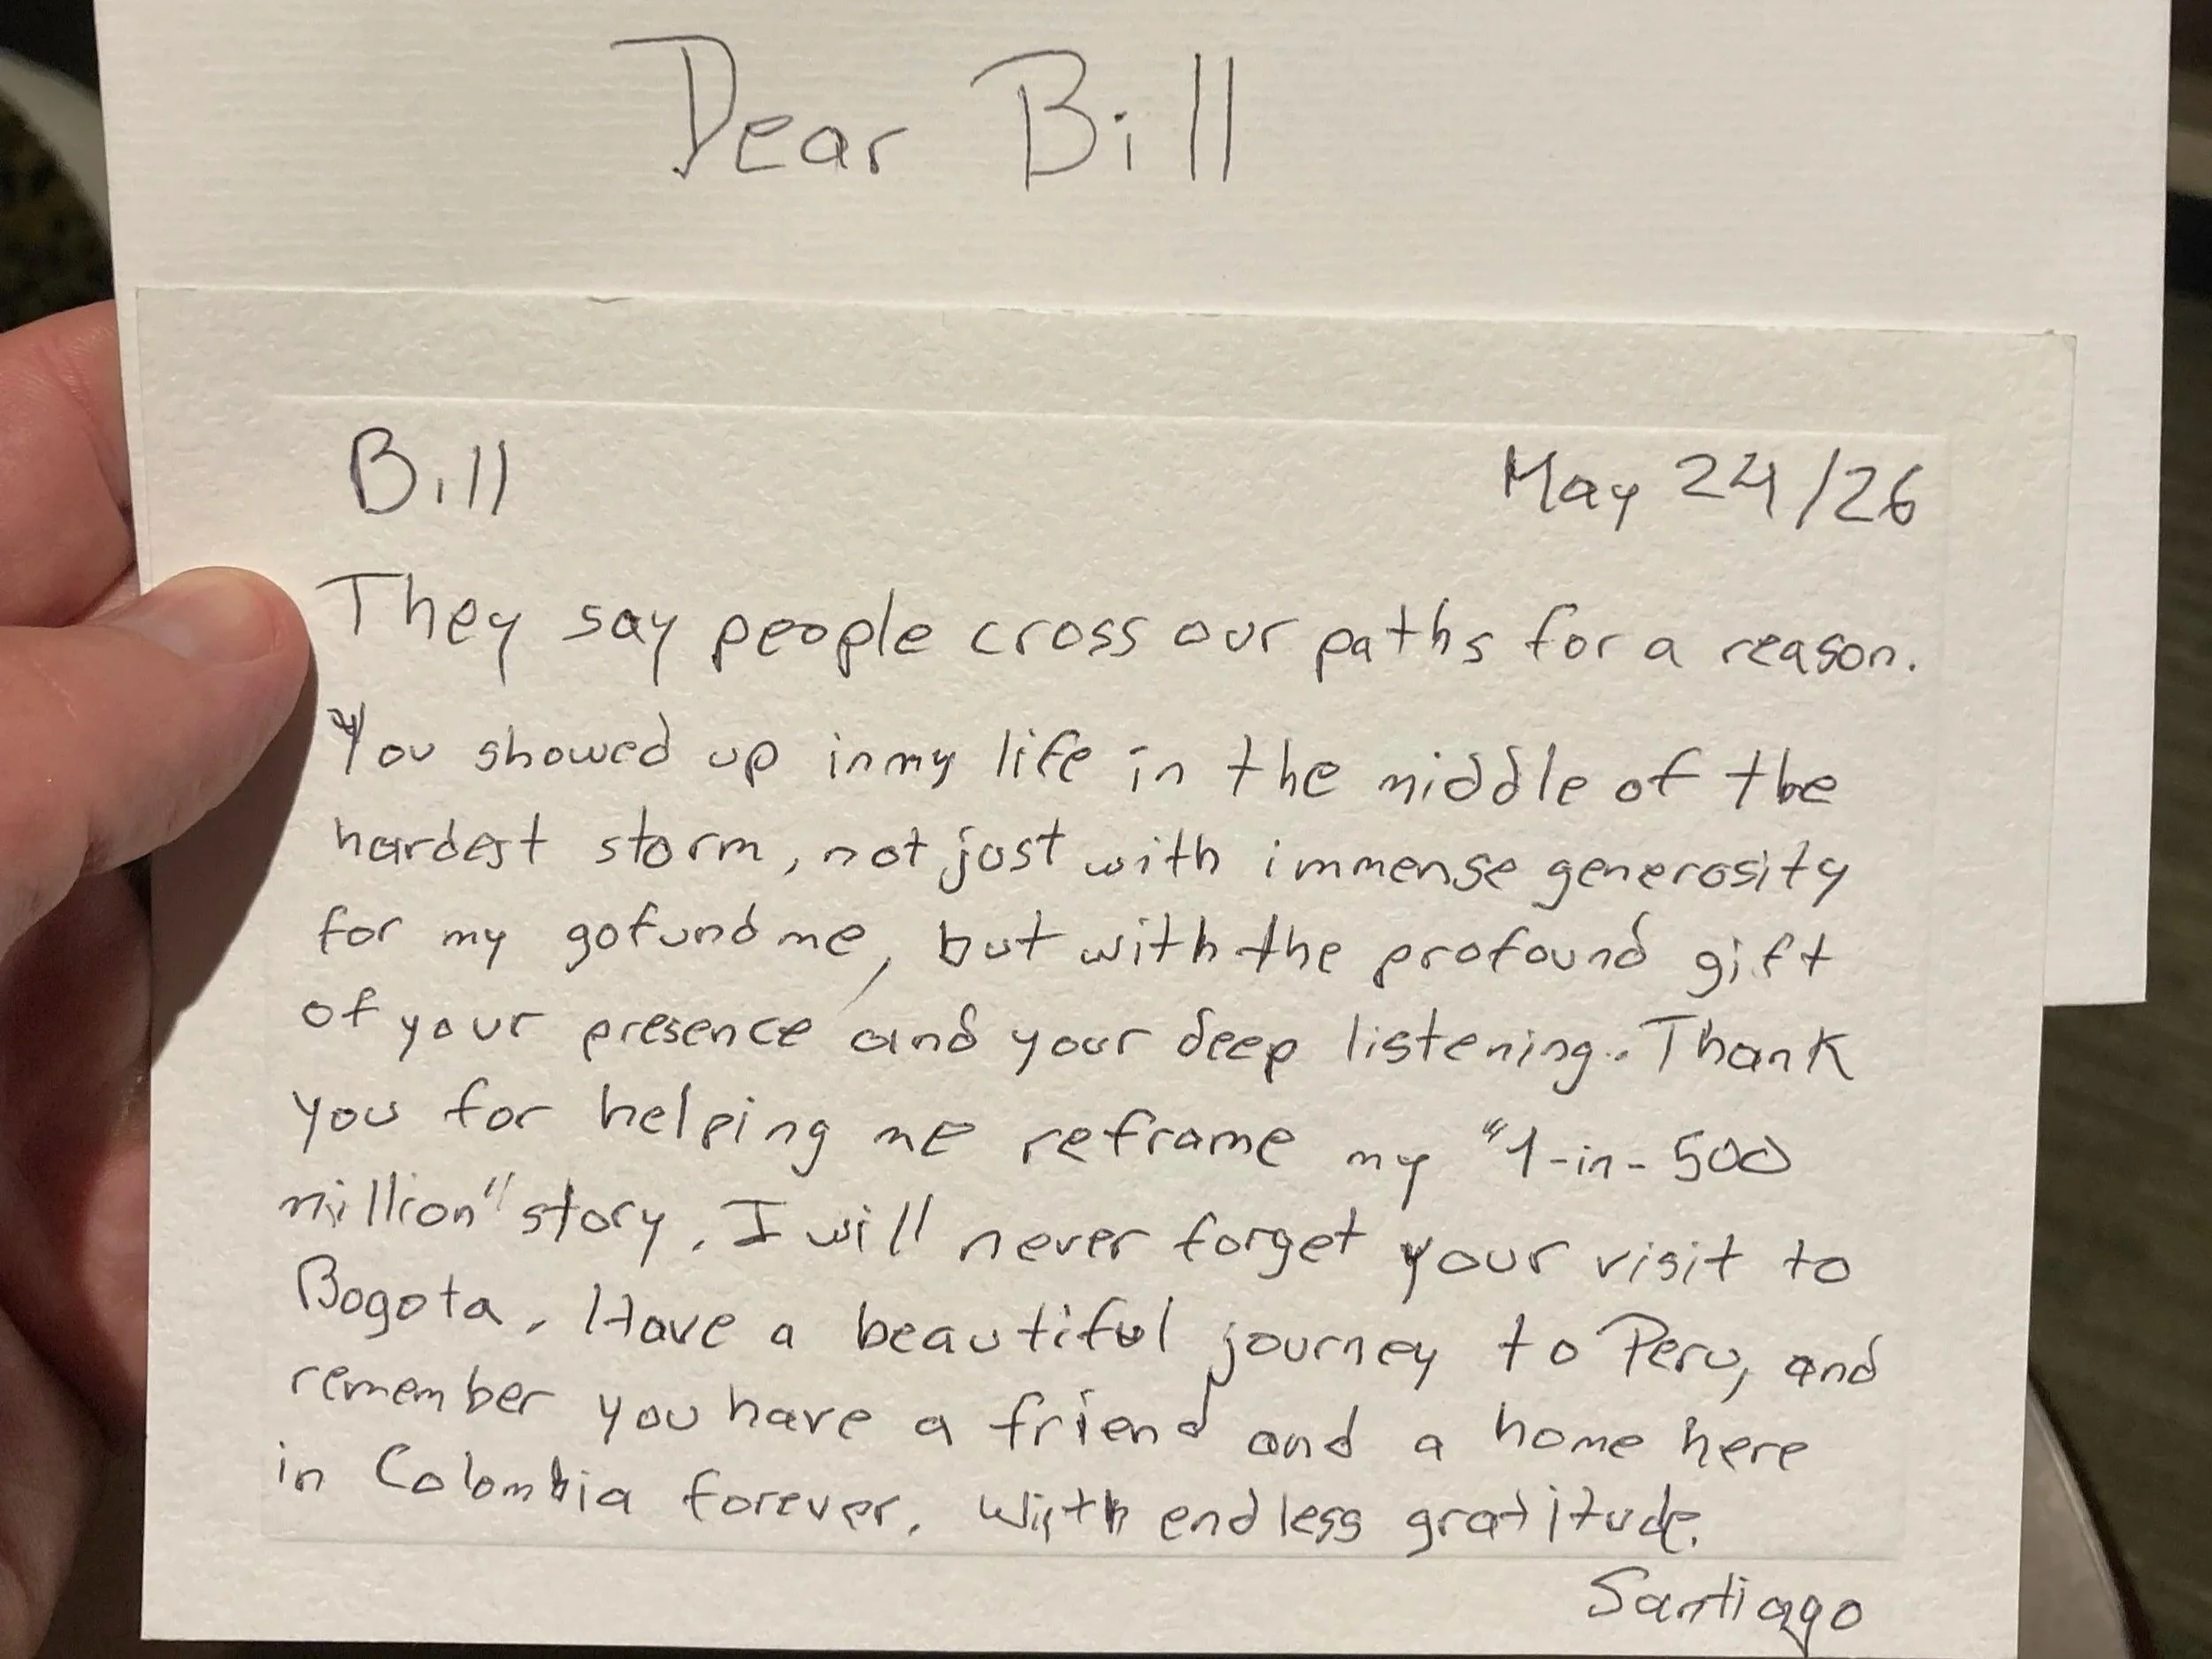 Dear Bill
Bill
May 24/26
They say people cross our paths for a reason.
You showed up in my life in the middle of the
hardest storm, not just with immense generosity
for my gofundme, but with the profound gift
of your presence and your deep listening. Thank
you for helping me reframe my "1-in-500
million" story. I will never forget your visit to
Bogota. Have a beautiful journey to Peru, and
remember you have a friend and a home here
in Colombia forever. With endless gratitude.
Santiago